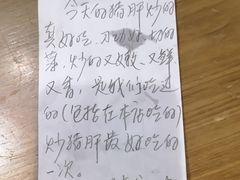 今天的猪肝炒的
真好吃，刀功切的
薄，炒的又嫩、又鲜
又香，是我们吃过
的（包括在本店吃的）
炒猪肝最好吃的
一次。